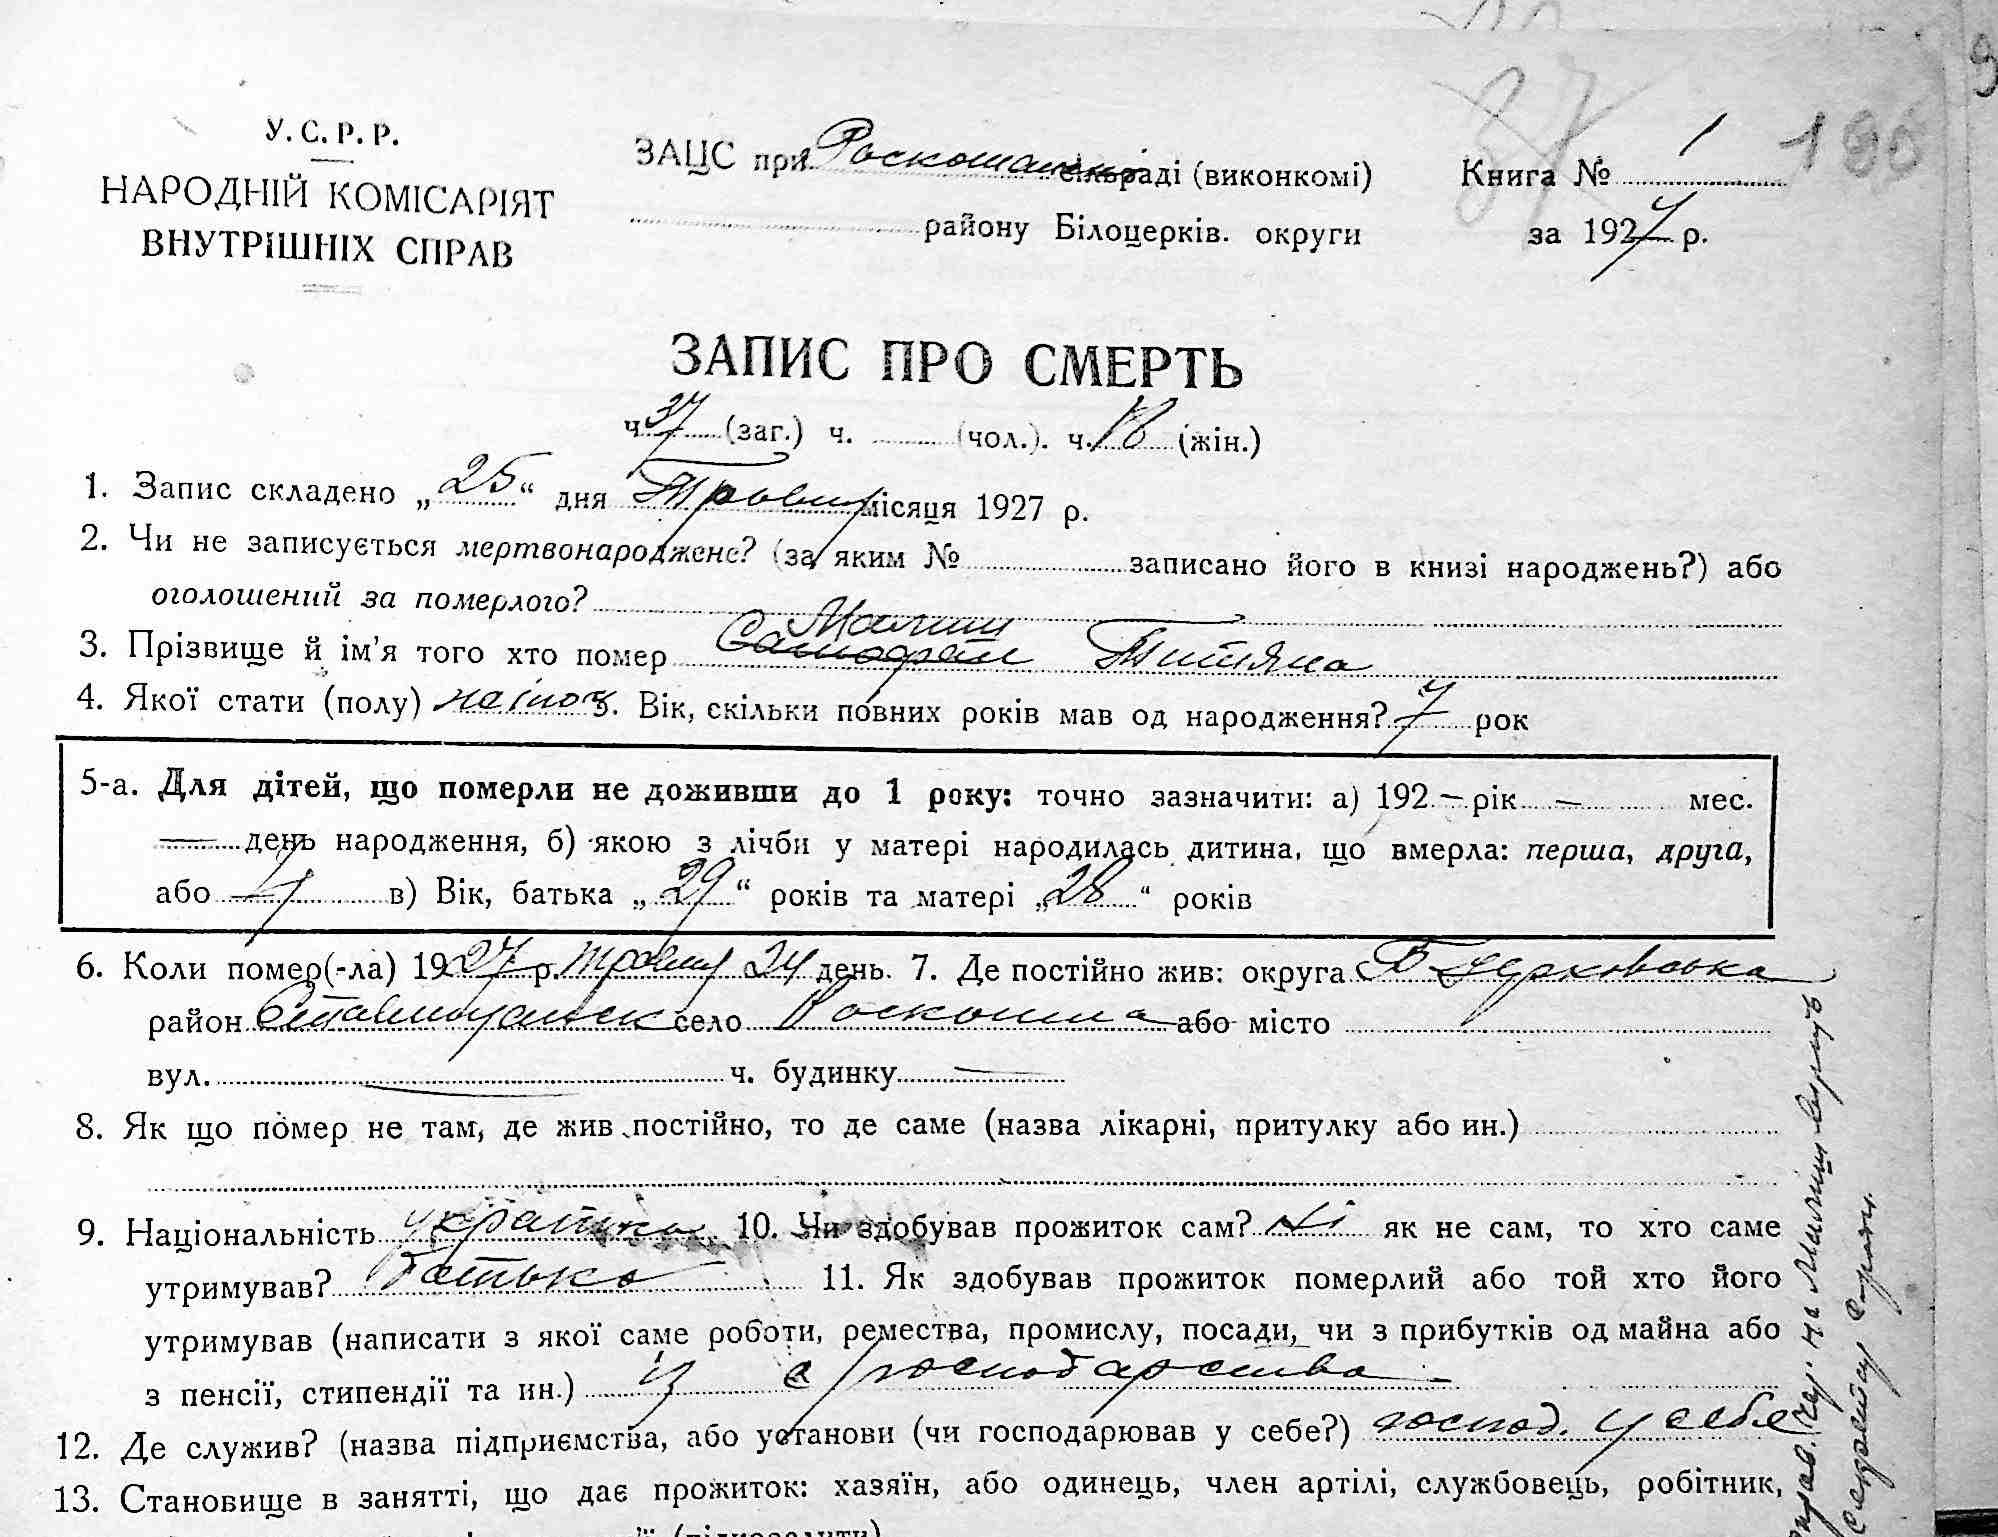 У. С. Р. Р.
НАРОДНІЙ КОМІСАРІЯТ
ВНУТРІШНІХ СПРАВ
ЗАЦС при сільраді (виконкомі)
району Білоцерків. округи
Книга № 1
за 1927 р.
37
ЗАПИС ПРО СМЕРТЬ
ч. 37 (заг.) ч. (чол.). ч. 18 (жін.)
1. Запис складено „25“ дня Травня місяця 1927 р.
2. Чи не записується мертвонароджене? (за яким № записано його в книзі народжень?) або
оголошений за померлого?
3. Прізвище й ім'я того хто помер Титяна
4. Якої стати (полу) жіноч. Вік, скільки повних років мав од народження? 7 рок
5-а. Для дітей, що померли не доживши до 1 року: точно зазначити: а) 192 — рік — мес.
— день народження, б) якою з лічби у матері народилась дитина, що вмерла: перша, друга,
або 4 в) Вік, батька „29“ років та матері „28“ років
6. Коли помер(-ла) 1927 р. травня 24 день. 7. Де постійно жив: округа Б Церковська
район село Роскошна або місто
вул. — ч. будинку —
8. Як що помер не там, де жив постійно, то де саме (назва лікарні, притулку або ин.)
9. Національність українка 10. Чи здобував прожиток сам? Ні як не сам, то хто саме
утримував? Батько 11. Як здобував прожиток померлий або той хто його
утримував (написати з якої саме роботи, ремества, промислу, посади, чи з прибутків од майна або
з пенсії, стипендії та ин.) із с/господарства
12. Де служив? (назва підприємства, або установи (чи господарював у себе?) господ. у себе
13. Становище в занятті, що дає прожиток: хазяїн, або одинець, член артілі, службовець, робітник,
(підкреслити)